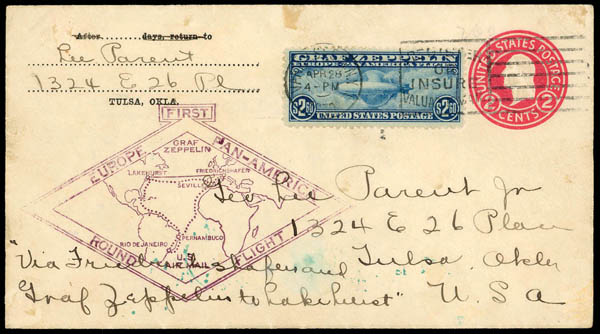 After days, return to
Lee Parent
1324 E 26 Pl
TULSA, OKLA.
GRAF ZEPPELIN
EUROPE-PAN-AMERICA FLIGHT
$2.60 $2.60
UNITED STATES POSTAGE
APR 28
4-PM
INSU
VALUA
UNITED STATES POSTAGE
2 CENTS 2
FIRST
EUROPE PAN-AMERICA
GRAF
ZEPPELIN
LAKEHURST FRIEDRICHSHAFEN
SEVILLE
RIO DE JANEIRO PERNAMBUCO
U.S.
AIR MAIL
ROUND FLIGHT
Lee Parent Jr
1324 E 26 Place
Tulsa, Okla
U. S A
"Via Friedrichshafen and
Graf Zeppelin to Lakehurst"